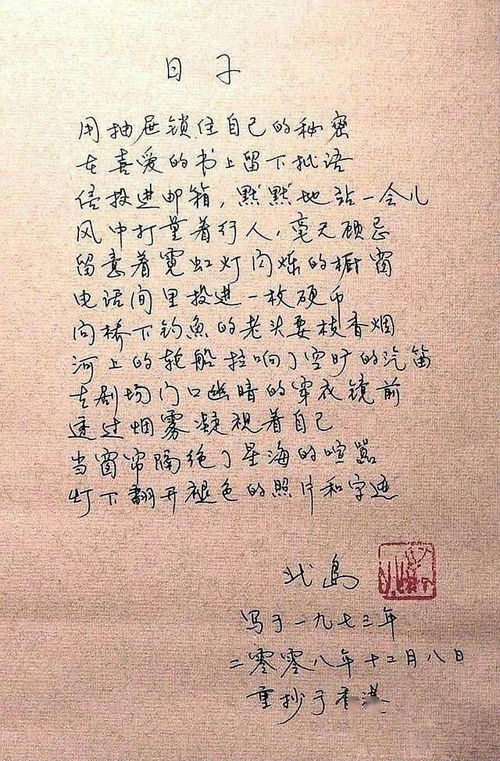 日子
用抽屉锁住自己的秘密
在喜爱的书上留下批语
信投进邮箱，默默地站一会儿
风中打量着行人，毫无顾忌
留意着霓虹灯闪烁的橱窗
电话间里投进一枚硬币
向桥下钓鱼的老头要枝香烟
河上的轮船拉响了空旷的汽笛
在剧场门口幽暗的穿衣镜前
透过烟雾凝视着自己
当窗帘隔绝了星海的喧嚣
灯下翻开褪色的照片和字迹
北岛
写于一九七三年
二零零八年十二月八日
重抄于香港